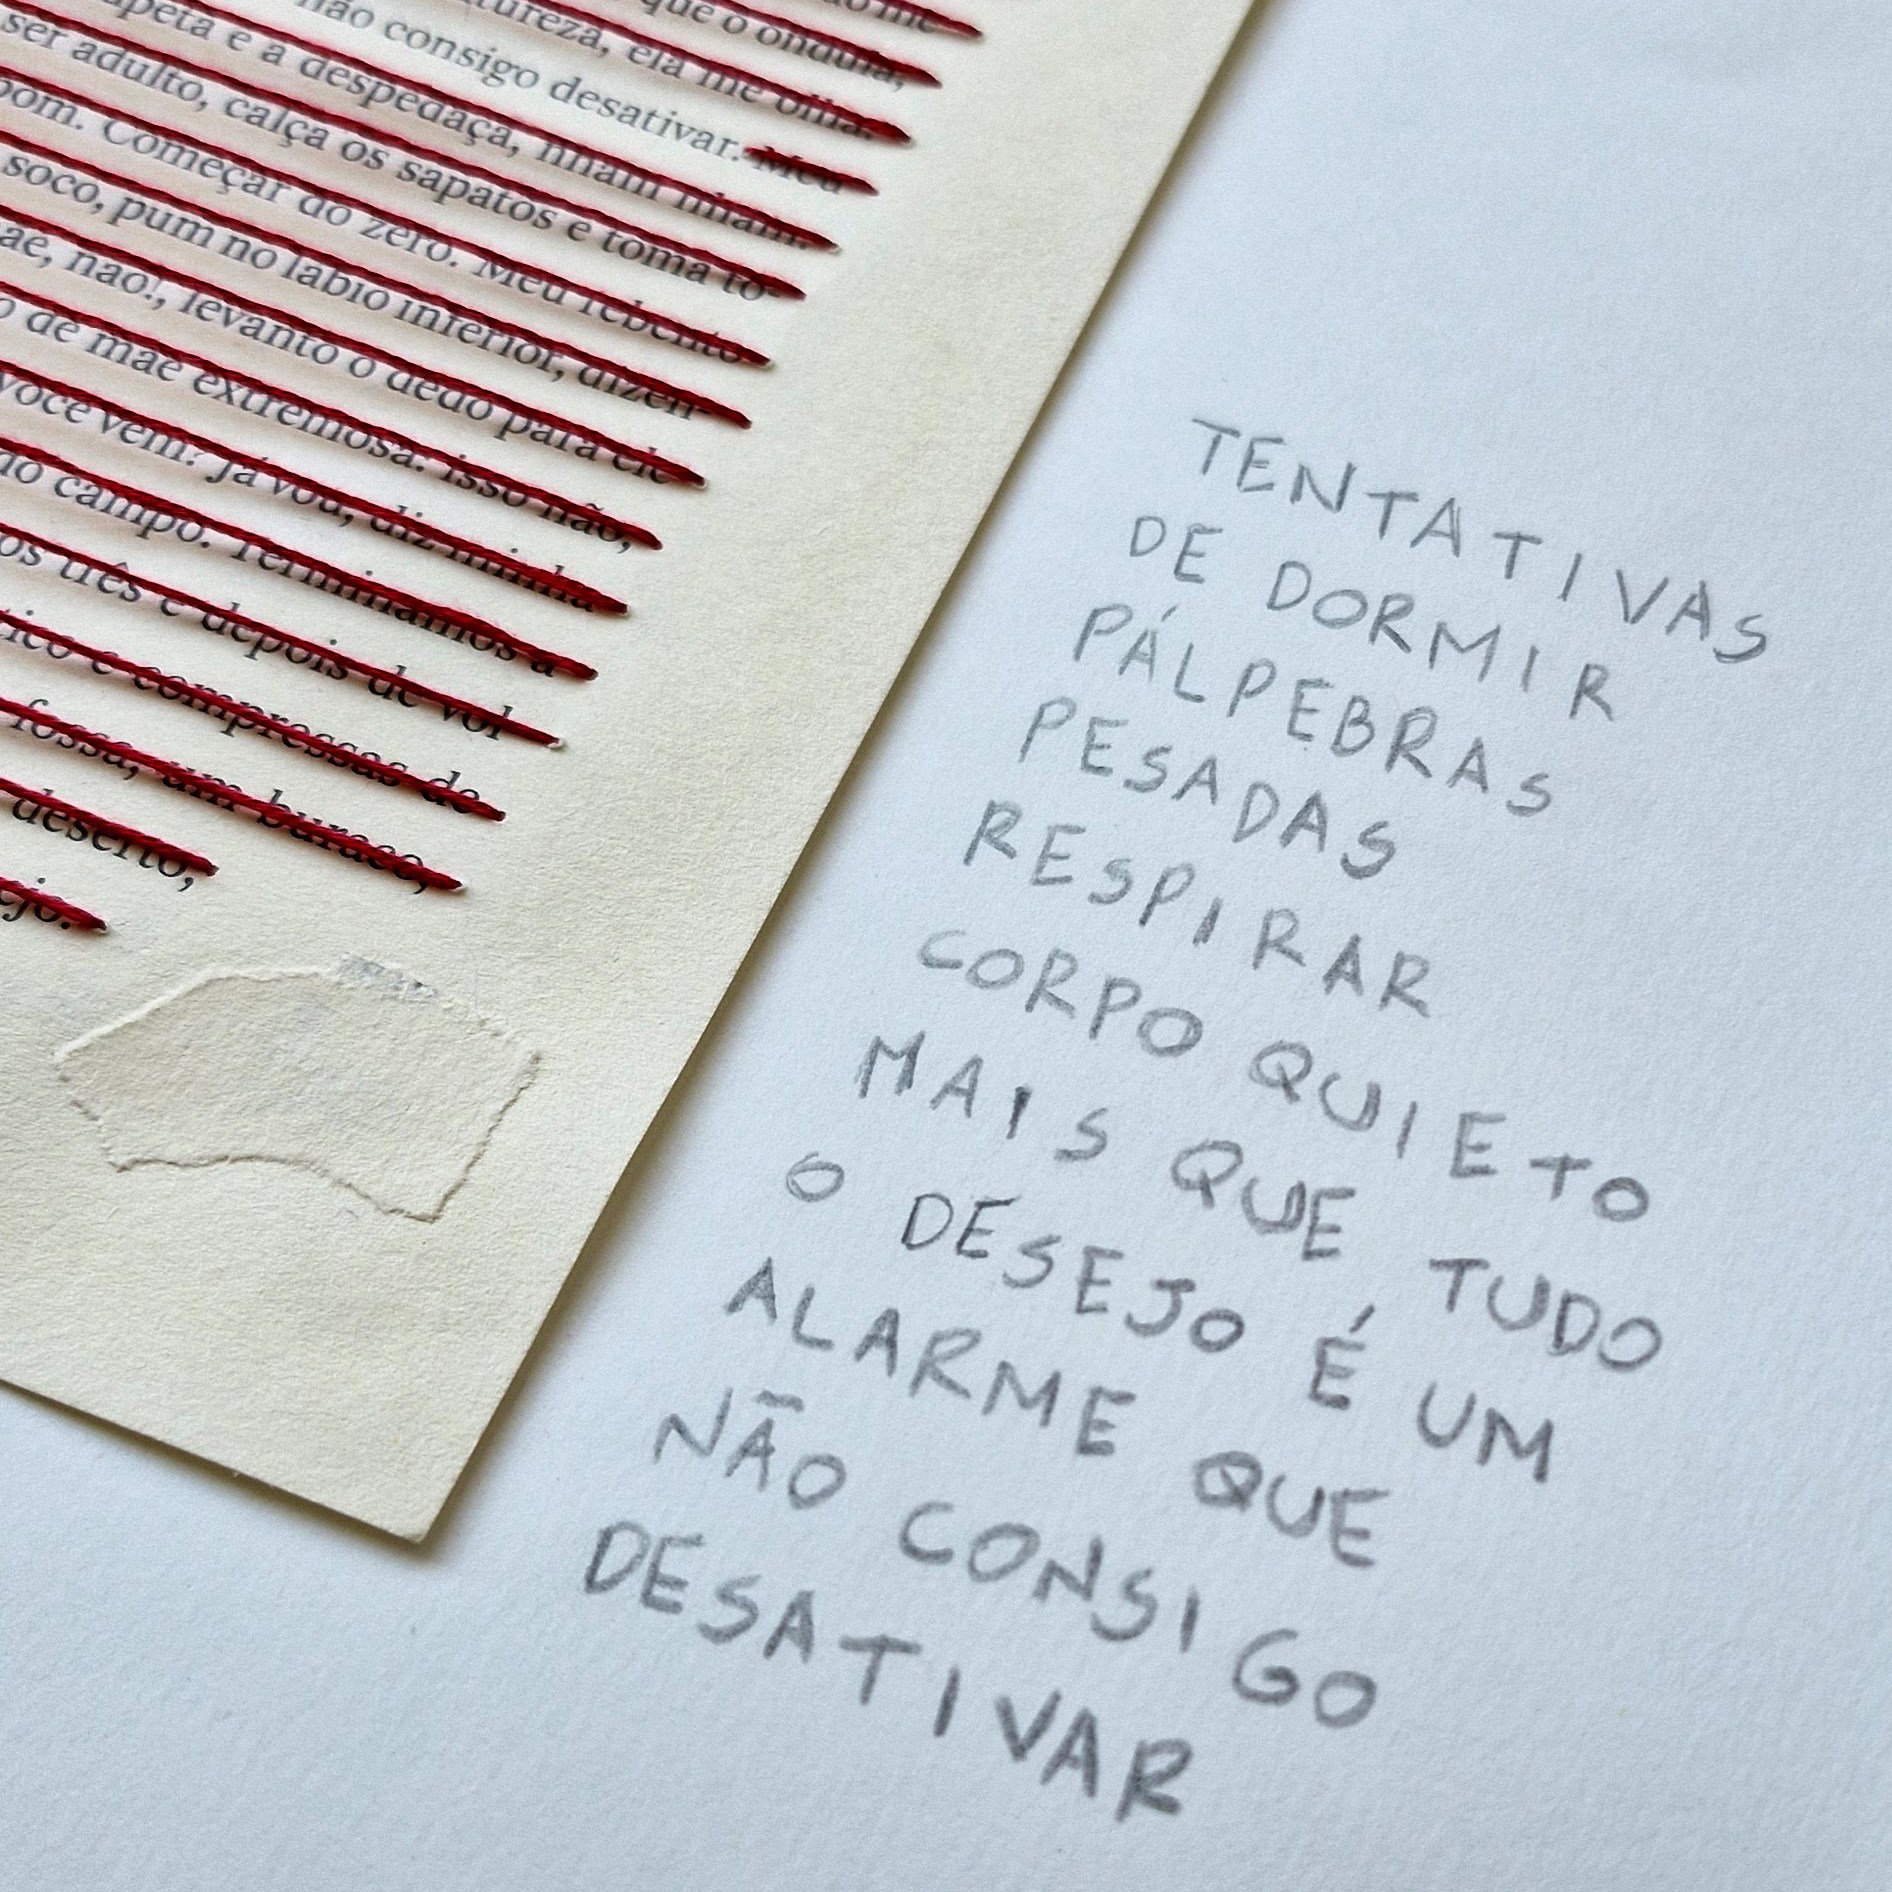 que o ondula,
tureza, ela me olha.
não consigo desativar. Meu
peta e a despedaça, nham nham.
ser adulto, calça os sapatos e toma to-
bom. Começar do zero. Meu rebento
soco, pum no lábio inferior, dizen-
ãe, não!, levanto o dedo para ele
o de mãe extremosa: isso não,
você vem? Já vou, diz minha
do campo. Terminamos a
os três e depois de vol
tico e compressas de
fossa, um buraco,
deserto,
ejo.
TENTATIVAS
DE DORMIR
PÁLPEBRAS
PESADAS
RESPIRAR
CORPO QUIETO
MAIS QUE TUDO
O DESEJO É UM
ALARME QUE
NÃO CONSIGO
DESATIVAR